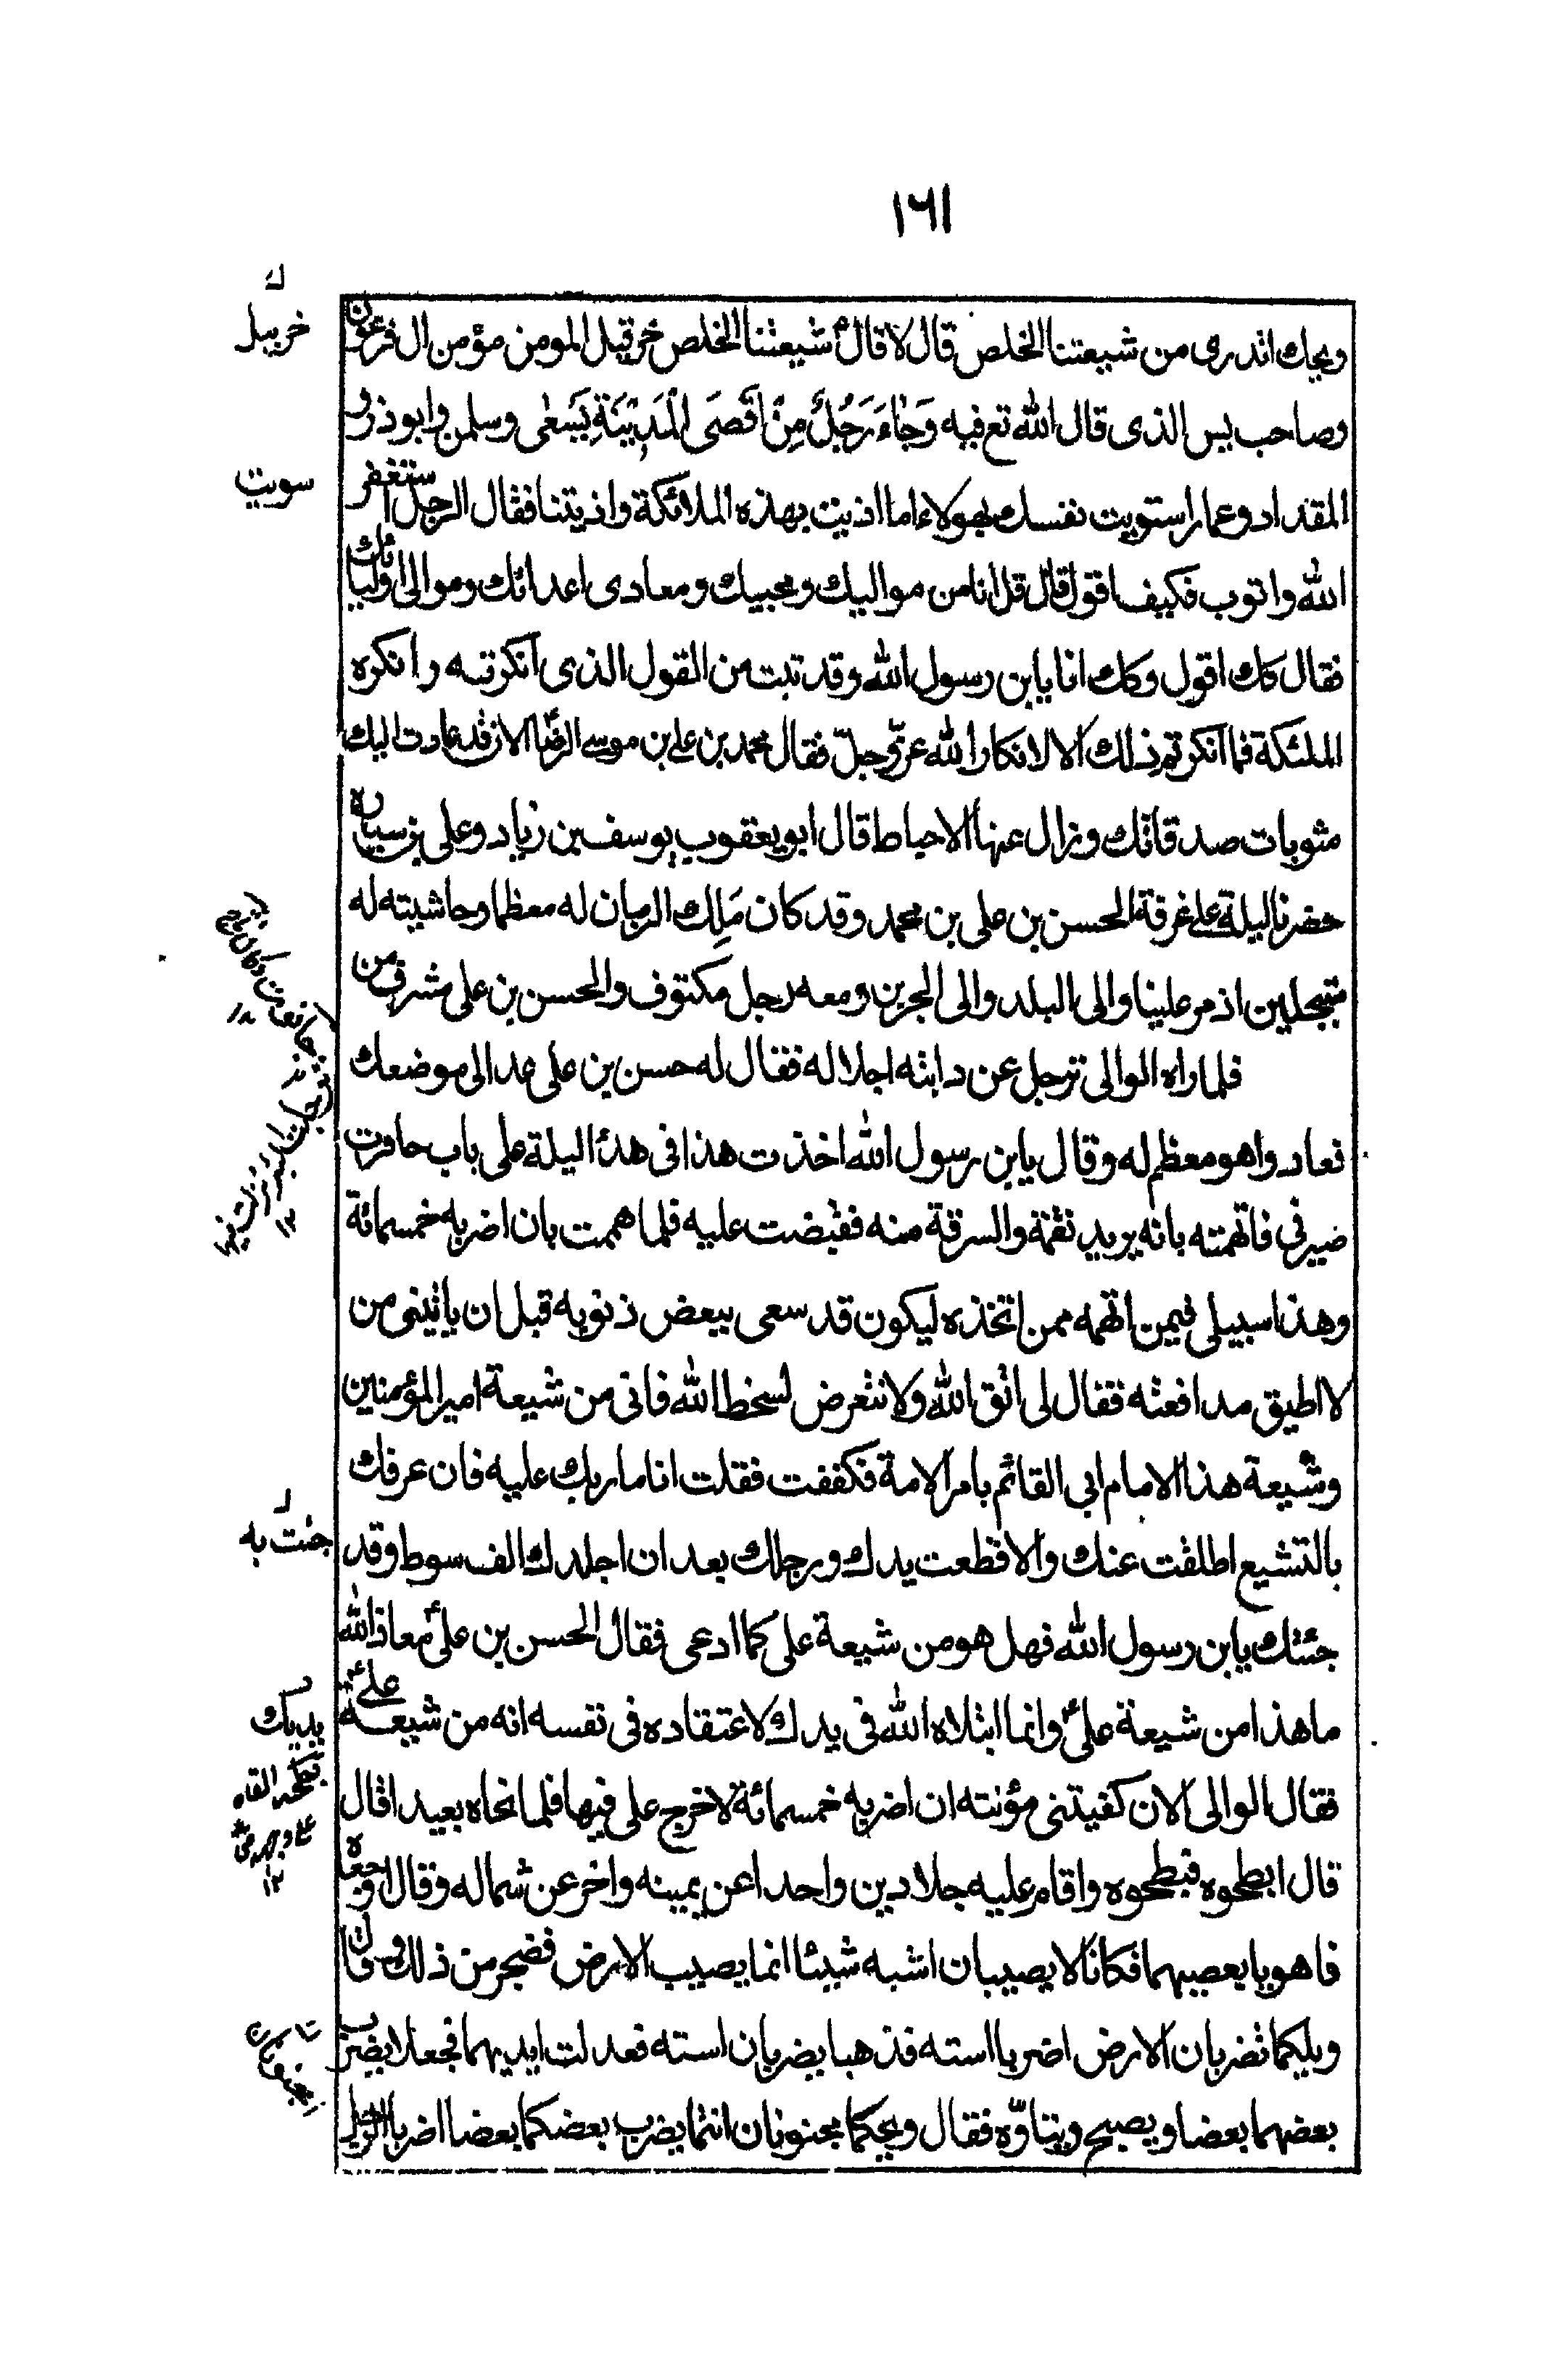 ١٦١
ويحك اتدرى من شيعتنا الخلص قال لا قال شيعتنا الخلص خرقيل المومن مؤمن ال فرعون
وصاحب يس الذى قال الله تع فيه وَجَاءَ رَجُلٌ مِنْ اَقْصَى الْمَدِيْنَةِ يَسْعٰى وسلمن وابوذر و
المقداد وعمار استويت نفسك بهولاء اما اذيت بهذه الملائكة واذيتنا فقال الرجل استغفر
الله واتوب فكيف اقول قال قل انا من مواليك ومحبيك ومعادى اعدائك وموالى اوليائك
فقال كك اقول وكك انا يا بن رسول الله وقد تبت من القول الذى انكرته وانكره
الملئكة فما انكرتم ذلك الا لانكار الله عزّ وجلّ فقال محمد بن على بن موسى الرضاؑ الان قد عادت اليك
مثوبات صدقاتك وزال عنها الاحباط قال ابو يعقوب يوسف بن زياد وعلى بن سياره
حضرنا ليلة على غرفة الحسن بن على بن محمد وقد كان مَلِك الزمان له معظما وحاشيته له
متبجلين اذ مر علينا والى البلد والى الجرين ومعه رجل مكتوف والحسن بن على مشرف من
فلما راه الوالى ترجل عن دابته اجلالا له فقال له حسن بن على عد الى موضعك
فعاد واهو معظم له وقال يا بن رسول الله اخذت هذا فى هذه اليلة على باب حانوت
صيرفى فاتهمته بانه يريد نقمة والسرقة منه فقبضت عليه فلما هممت بان اضربه خمسمائة
وهذا سبيلى فيمن اتهمه ممن اتخذه ليكون قد سعى ببعض ذنوبه قبل ان ياتينى من
لا اطيق مدافعته فقال لى اتق الله ولا تتعرض لسخط الله فانى من شيعة امير المؤمنين
وشيعة هذا الامام ابى القائم بامر الامة فكففت فقلت انا مار بك عليه فان عرفك
بالتشيع اطلقت عنك والا قطعت يدك ورجلك بعد ان اجلدك الف سوط وقد
جئتك يا بن رسول الله فهل هو من شيعة على كما ادعى فقال الحسن بن علىؑ معاذ الله
ما هذا من شيعة علىؑ وانما ابتلاه الله فى يدك لاعتقاده فى نفسه انه من شيعة علىؑ
فقال الوالى الان كفيتنى مؤنته ان اضربه خمسمائة لا خرج على فيها فلما نحاه بعيدا قال
قال ابطحوه فبطحوه واقام عليه جلادين واحدا عن يمينه واخر عن شماله وقال اوجعاه
فاهويا بعصيهما فكانا لا يصيبان استه شيئا انما يصيب الارض فضجر من ذلك وقال
ويلكما تضربان الارض اضربا استه فذهبا يضربان استه فعدلت ايديهما فجعلا يضرب
بعضهما بعضا ويصيح ويتاوّه فقال ويحكما مجنونان انتما يضرب بعضكما بعضا اضربا الرجل
خربيل
سويت
جئت به
يديك
بطحه القاه
على وجهه
١٢